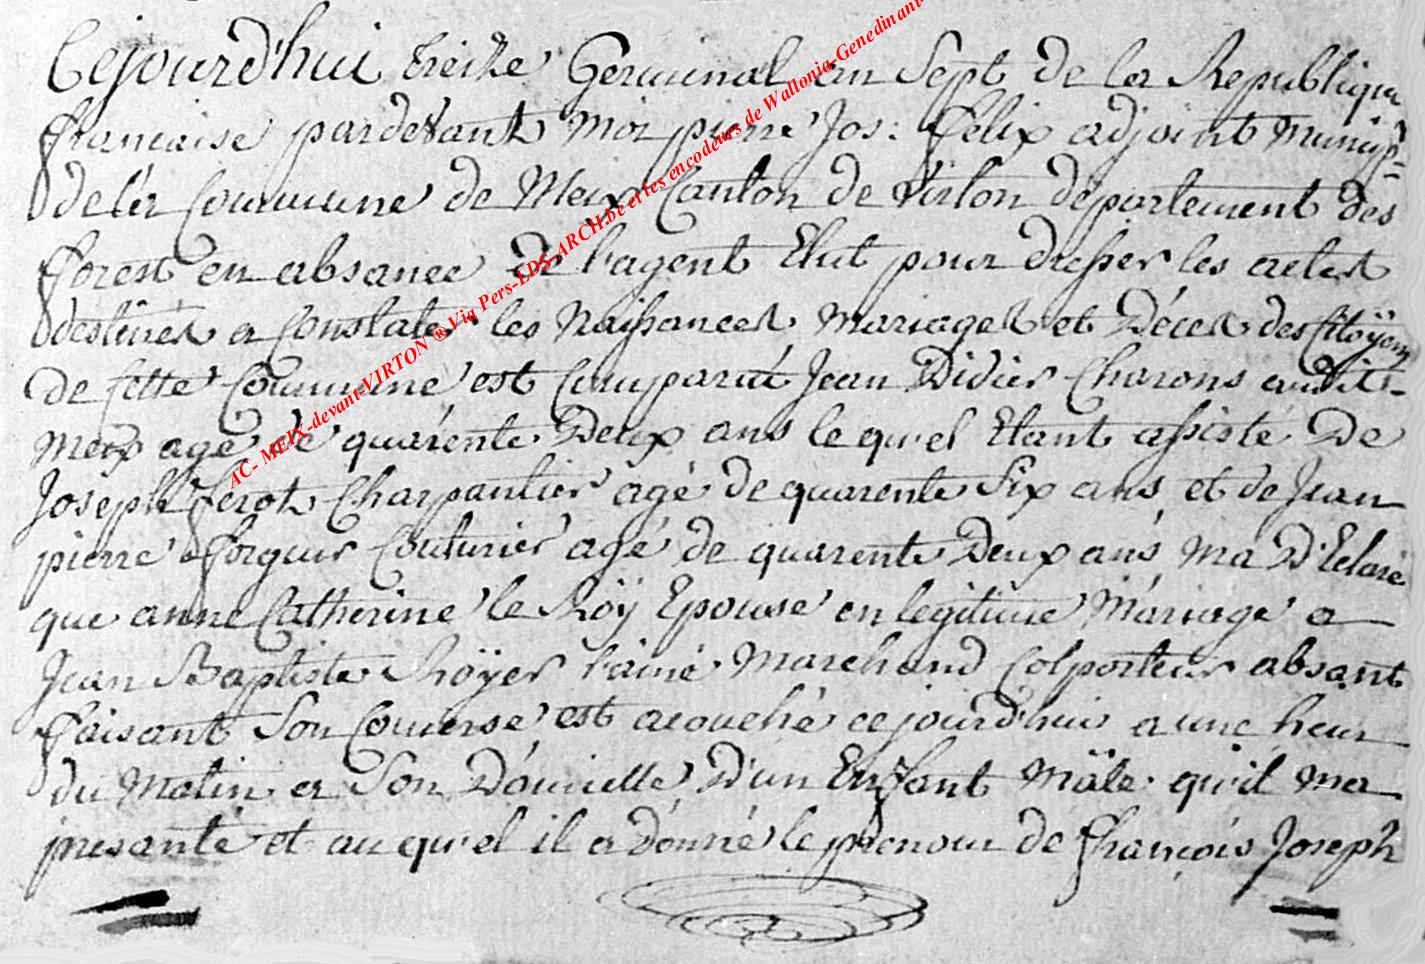 Cejourd'hui treize Germinal an Sept de la Republique
francaise pardevant Moi pierre Jos: felix adjoint municip
de la Commune de Meix Canton de virton departement des
forest en absance de l'agent Elut pour dresser les actes
destinés a Constater les Naissances mariages et Déces des Citoÿens
de Cette Commune est Comparut Jean Didier Charons audit
meix agé de quarente Deux ans lequel Etant assiste De
Joseph ferot Charpantier agé de quarente Six ans et de Jean
pierre forgeur Couturier agé de quarente Deux ans ma D'Eclaré
que anne Catherine le Roÿ Epouse en legitime Mariage a
Jean Baptiste Roÿer l'ainé Marchand Colporteur absant
faisant Son Comerse est acouché cejourd'hui a une heur
du Matin a Son Domicille D'un Enfant Mâle qu'il ma
presanté et au quel il a donné le prenom de francois Joseph
AC- MEIX-devant-VIRTON ® Via Pers-LDS-ARCH.be et les encodeurs de Wallonia-Genedinant